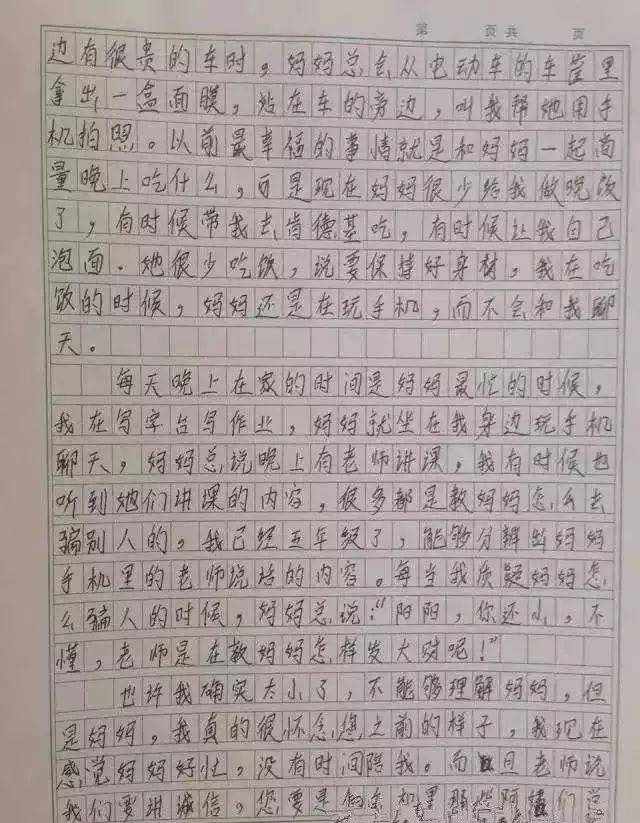 第 页共 页
边有很贵的车时，妈妈总会从电动车的车筐里
拿出一盒面膜，站在车的旁边，叫我帮她用手
机拍照。以前最幸福的事情就是和妈妈一起商
量晚上吃什么，可是现在妈妈很少给我做晚饭
了，有时候带我去肯德基吃，有时候让我自己
泡面。她很少吃饭，说要保持好身材，我在吃
饭的时候，妈妈还是在玩手机，而不会和我聊
天。
每天晚上在家的时间是妈妈最忙的时候，
我在写字台写作业，妈妈就坐在我身边玩手机
聊天，妈妈总说晚上有老师讲课，我有时候也
听到她们讲课的内容，很多都是教妈妈怎么去
骗别人的。我已经五年级了，能够分辨出妈妈
手机里的老师说话的内容。每当我质疑妈妈怎
么骗人的时候，妈妈总说：“阳阳，你还小，不
懂，老师是在教妈妈怎样发大财呢！”
也许我确实太小了，不能够理解妈妈，但
是妈妈，我真的很怀念您之前的样子，我现在
感觉妈妈好忙，没有时间陪我。而且老师说
我们要讲诚信，您要是 机里那些阿姨们